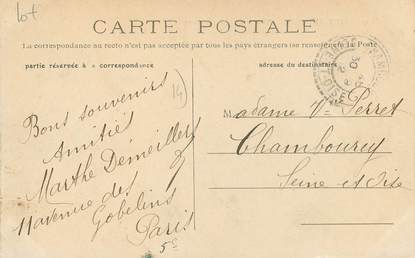 Lot
CARTE POSTALE
La correspondance au recto n'est pas acceptée par tous les pays étrangers (se renseigner à la Poste
partie réservée à la correspondance
adresse du destinataire
14
Bons souvenirs
Amitiés
Marthe Demeillers
11 avenue des
Gobelins
Paris
5e
Madame Vve Perret
Chambourcy
Seine et Oise